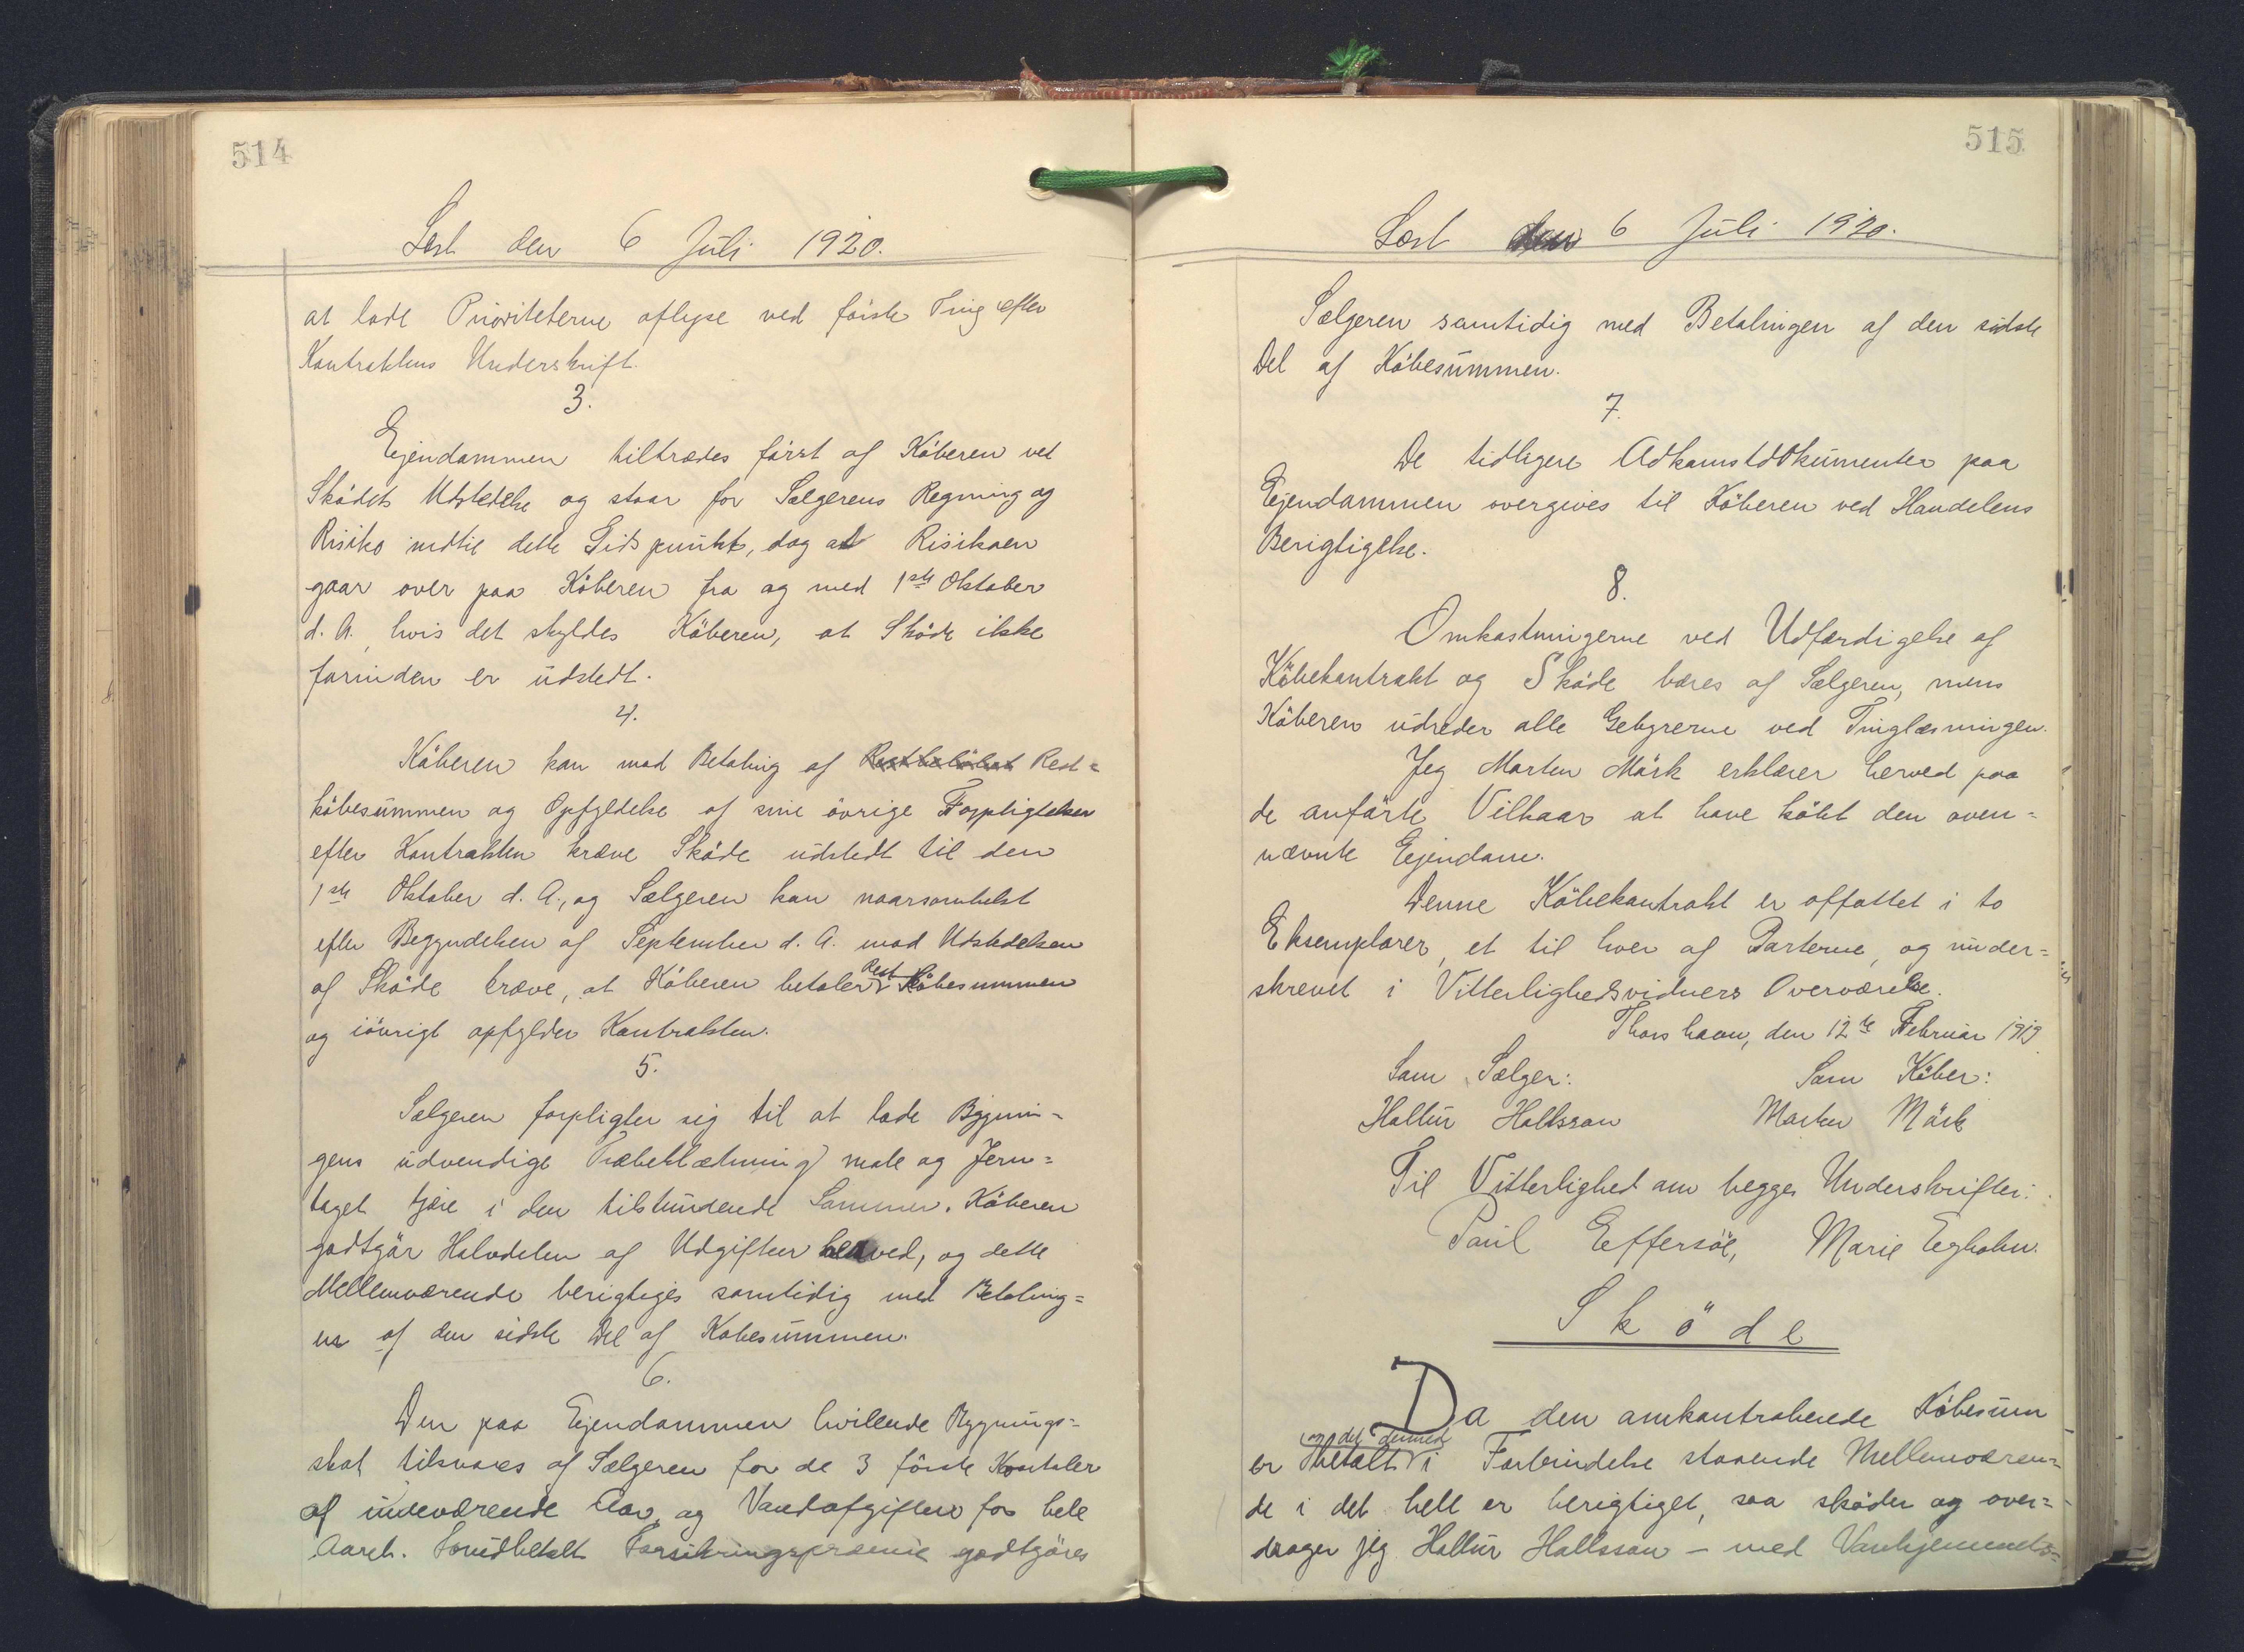 514
Læst den 6 Juli 1920.
at lade Prioriteterne aflyse ved förste Ting efter
Kontraktens Underskrift.
3.
Ejendommen tiltrædes först af Köberen ved
Sködets Udstedelse og staar for Sælgerens Regning og
Risiko indtil dette Tidspunkt, dog at Risikoen
gaar over paa Köberen fra og med 1ste Oktober
d. A., hvis det skyldes Köberen, at Sköde ikke
forinden er udstedt.
4.
Köberen kan mod Betaling af Restbelöbet Rest=
köbesummen og Opfyldelse af sine övrige Forpligtelser
efter Kontrakten kræve Sköde udstedt til den
1ste Oktober d. A., og Sælgeren kan naarsomhelst
efter Begyndelsen af September d. A. mod Udstedelsen
af Sköde kræve, at Köberen betaler Rest Köbesummen
og iövrigt opfylder Kontrakten.
5.
Sælgeren forpligter sig til at lade Bygnin-
gens udvendige Træbeklædning male og Jern=
taget tjære i den tilstundende Sommer. Köberen
godtgör Halvdelen af Udgifterne herved, og dette
Mellemværende berigtiges samtidig med Betaling=
en af den sidste Del af Köbesummen.
6.
Den paa Ejendommen hvilende Bygnings=
skat tilsvares af Sælgeren for de 3 förste Kvartaler
af indeværende Aar, og Vandafgiften for hele
Aaret. Forudbetalt Forsikringspræmie godtgöres
515
Læst den 6 Juli 1920.
Sælgeren samtidig med Betalingen af den sidste
Del af Köbesummen.
7.
De tidligere Adkomstdokumenter paa
Ejendommen overgives til Köberen ved Handelens
Berigtigelse.
8.
Omkostningerne ved Udfærdigelse af
Köbekontrakt og Sköde bæres af Sælgeren, mens
Köberen udreder alle Gebyrerne ved Tinglæsningen.
Jeg Morten Mörk erklærer herved paa
de anförte Vilkaar at have köbt den oven=
nævnte Ejendom.
Denne Köbekontrakt er affattet i to
Eksemplarer, et til hver af Parterne, og under=
skrevet i Vitterlighedsvidners Overværelse.
Thorshavn, den 12te Februar 1919
Som Sælger: Som Köber:
Hallur Hallsson Morten Mörk
Til Vitterlighed om begges Underskrifter:
Paul Effersöe, Marie Egholm.
Sköde
Da den omkontraherede Köbesum
er betalt og det dermed i Forbindelse staaende Mellemværen=
de i det hele er berigtiget, saa sköder og over=
drager jeg Hallur Hallsson – med Vanhjemmels=